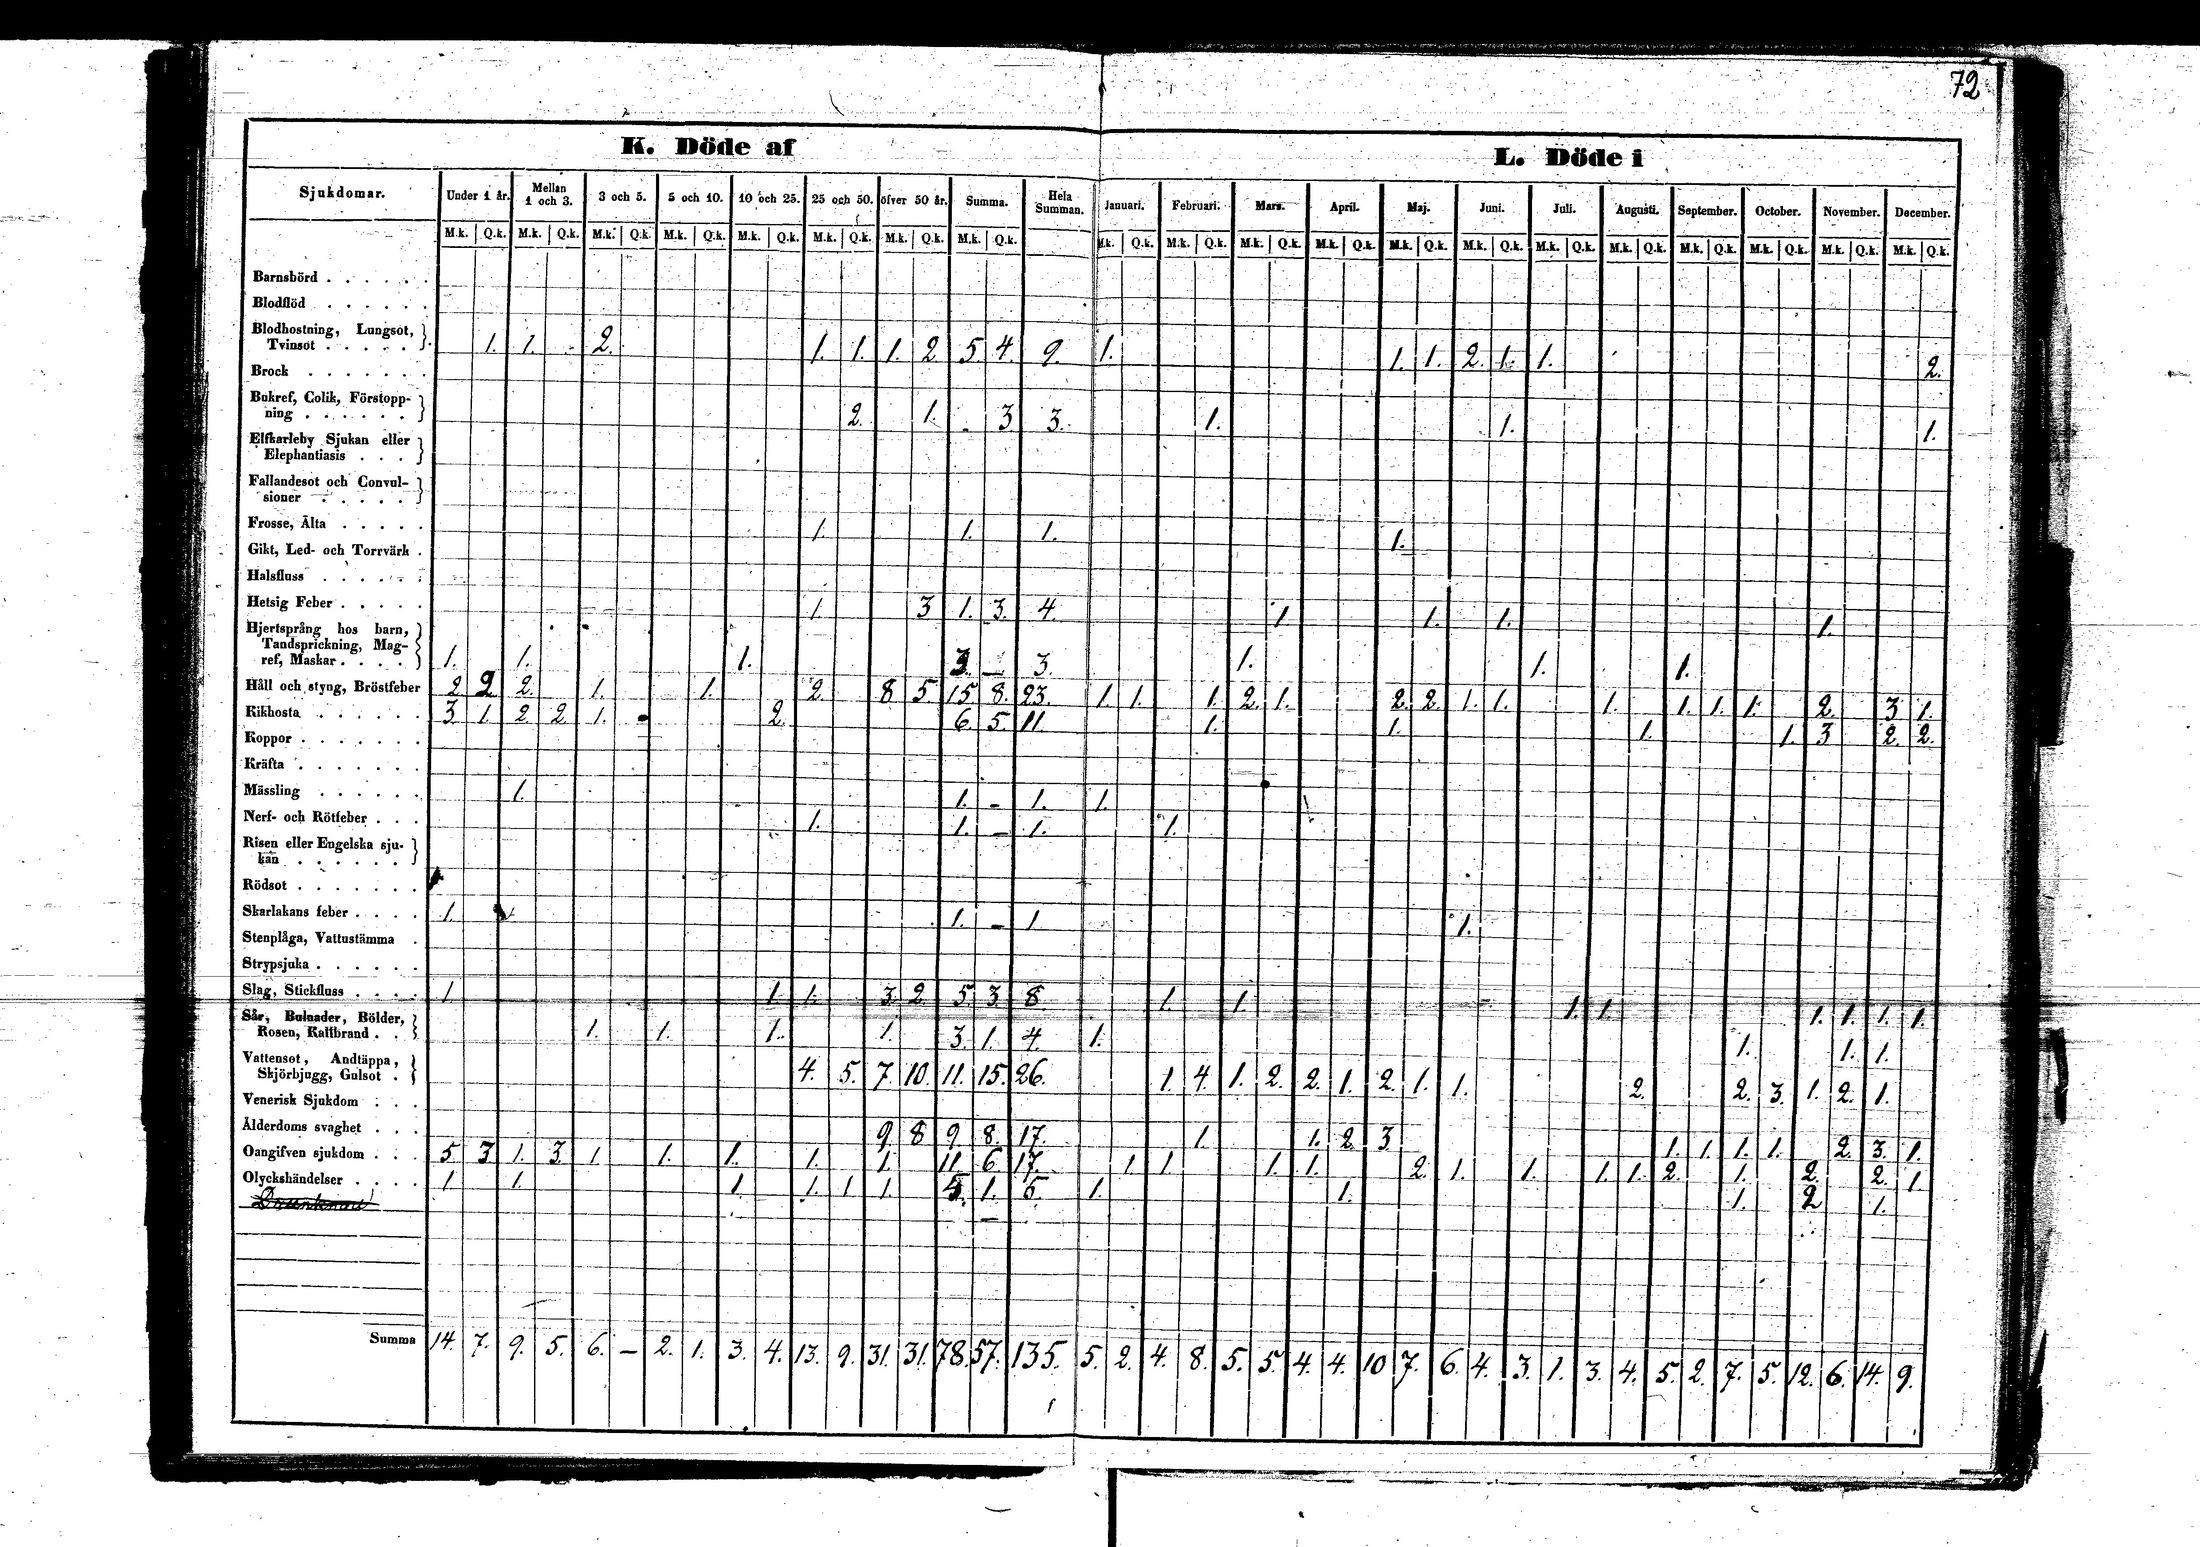 72
K. Döde af
L. Döde i
Sjukdomar. Under 1 år. Mellan 1 och 3. 3 och 5. 5 och 10. 10 och 25. 25 och 50. öfver 50 år. Summa. Hela Summan. Januari. Februari. Mars. April. Maj. Juni. Juli. Augusti. September. October. November. December.
M.k. Q.k. M.k. Q.k. M.k. Q.k. M.k. Q.k. M.k. Q.k. M.k. Q.k. M.k. Q.k. M.k. Q.k. M.k. Q.k. M.k. Q.k. M.k. Q.k. M.k. Q.k. M.k. Q.k. M.k. Q.k. M.k. Q.k. M.k. Q.k. M.k. Q.k. M.k. Q.k. M.k. Q.k. M.k. Q.k.
Barnsbörd . . . . . .
Blodflöd . . . . . .
Blodhostning, Lungsot,
Tvinsot . . . . . 1. 1. 2. 1. 1. 1. 2 5. 4. 9. 1. 1. 1. 2. 1. 1. 2.
Brock . . . . . . .
Bukref, Colik, Förstopp-
ning . . . . . . 2. 1. - 3 3. 1. 1. 1.
Elfkarleby Sjukan eller
Elephantiasis . . .
Fallandesot och Convul-
sioner . . . . .
Frosse, Älta . . . . . 1. 1. 1. 1.
Gikt, Led- och Torrvärk .
Halsfluss . . . . . .
Hetsig Feber . . . . . 1. 3 1. 3. 4. 1 1. 1. 1.
Hjertsprång hos barn,
Tandsprickning, Mag-
ref, Maskar . . . . 1. 1. 1. 3. - 3. 1. 1. 1.
Håll och styng, Bröstfeber 2 2 2. 1. 1. 2. 8 5. 15 8. 23. 1. 1. 1. 2. 1. 2. 2. 1. 1. 1. 1. 1. 1. 2. 3 1.
Kikhosta . . . . . . 3 1. 2 2 1. 2. 6. 5. 11. 1. 1. 1. 1. 3 2. 2.
Koppor . . . . . . .
Kräfta . . . . . . .
Mässling . . . . . . 1. 1. - 1. 1.
Nerf- och Rötfeber . . . 1. 1. - 1. 1.
Risen eller Engelska sju-
kan . . . . . .
Rödsot . . . . . . .
Skarlakans feber . . . . 1. 1. - 1 1.
Stenplåga, Vattustämma .
Strypsjuka . . . . . .
Slag, Stickfluss . . . . 1. 1. 1. 3. 2 5. 3. 8. 1. 1. 1. 1. 1. 1. 1. 1.
Sår, Bulnader, Bölder,
Rosen, Kallbrand . . 1. 1. 1. 1. 3. 1. 4. 1. 1. 1. 1.
Vattensot, Andtäppa,
Skjörbjugg, Gulsot . 4. 5. 7. 10. 11. 15. 26. 1. 4. 1. 2. 2. 1. 2. 1. 1. 2. 2. 3. 1. 2. 1.
Venerisk Sjukdom . . .
Ålderdoms svaghet . . . 9. 8 9. 8. 17. 1. 1. 2. 3 1. 1. 1. 1. 2. 3. 1.
Oangifven sjukdom . . . 5 3 1. 3. 1 1. 1. 1. 1. 11. 6. 17. 1. 1. 1. 1. 2. 1. 1. 1. 1. 2. 1. 2. 2. 1.
Olyckshändelser . . . . 1. 1. 1. 1. 1 1. 5. 1. 6. 1. 1. 1. 2 1.
Summa 14. 7. 9. 5. 6. - 2. 1. 3. 4. 13. 9. 31. 31. 78. 57. 135. 5. 2. 4. 8. 5. 5. 4. 4. 10 7. 6. 4. 3. 1. 3. 4. 5. 2. 7. 5. 12. 6. 14. 9.